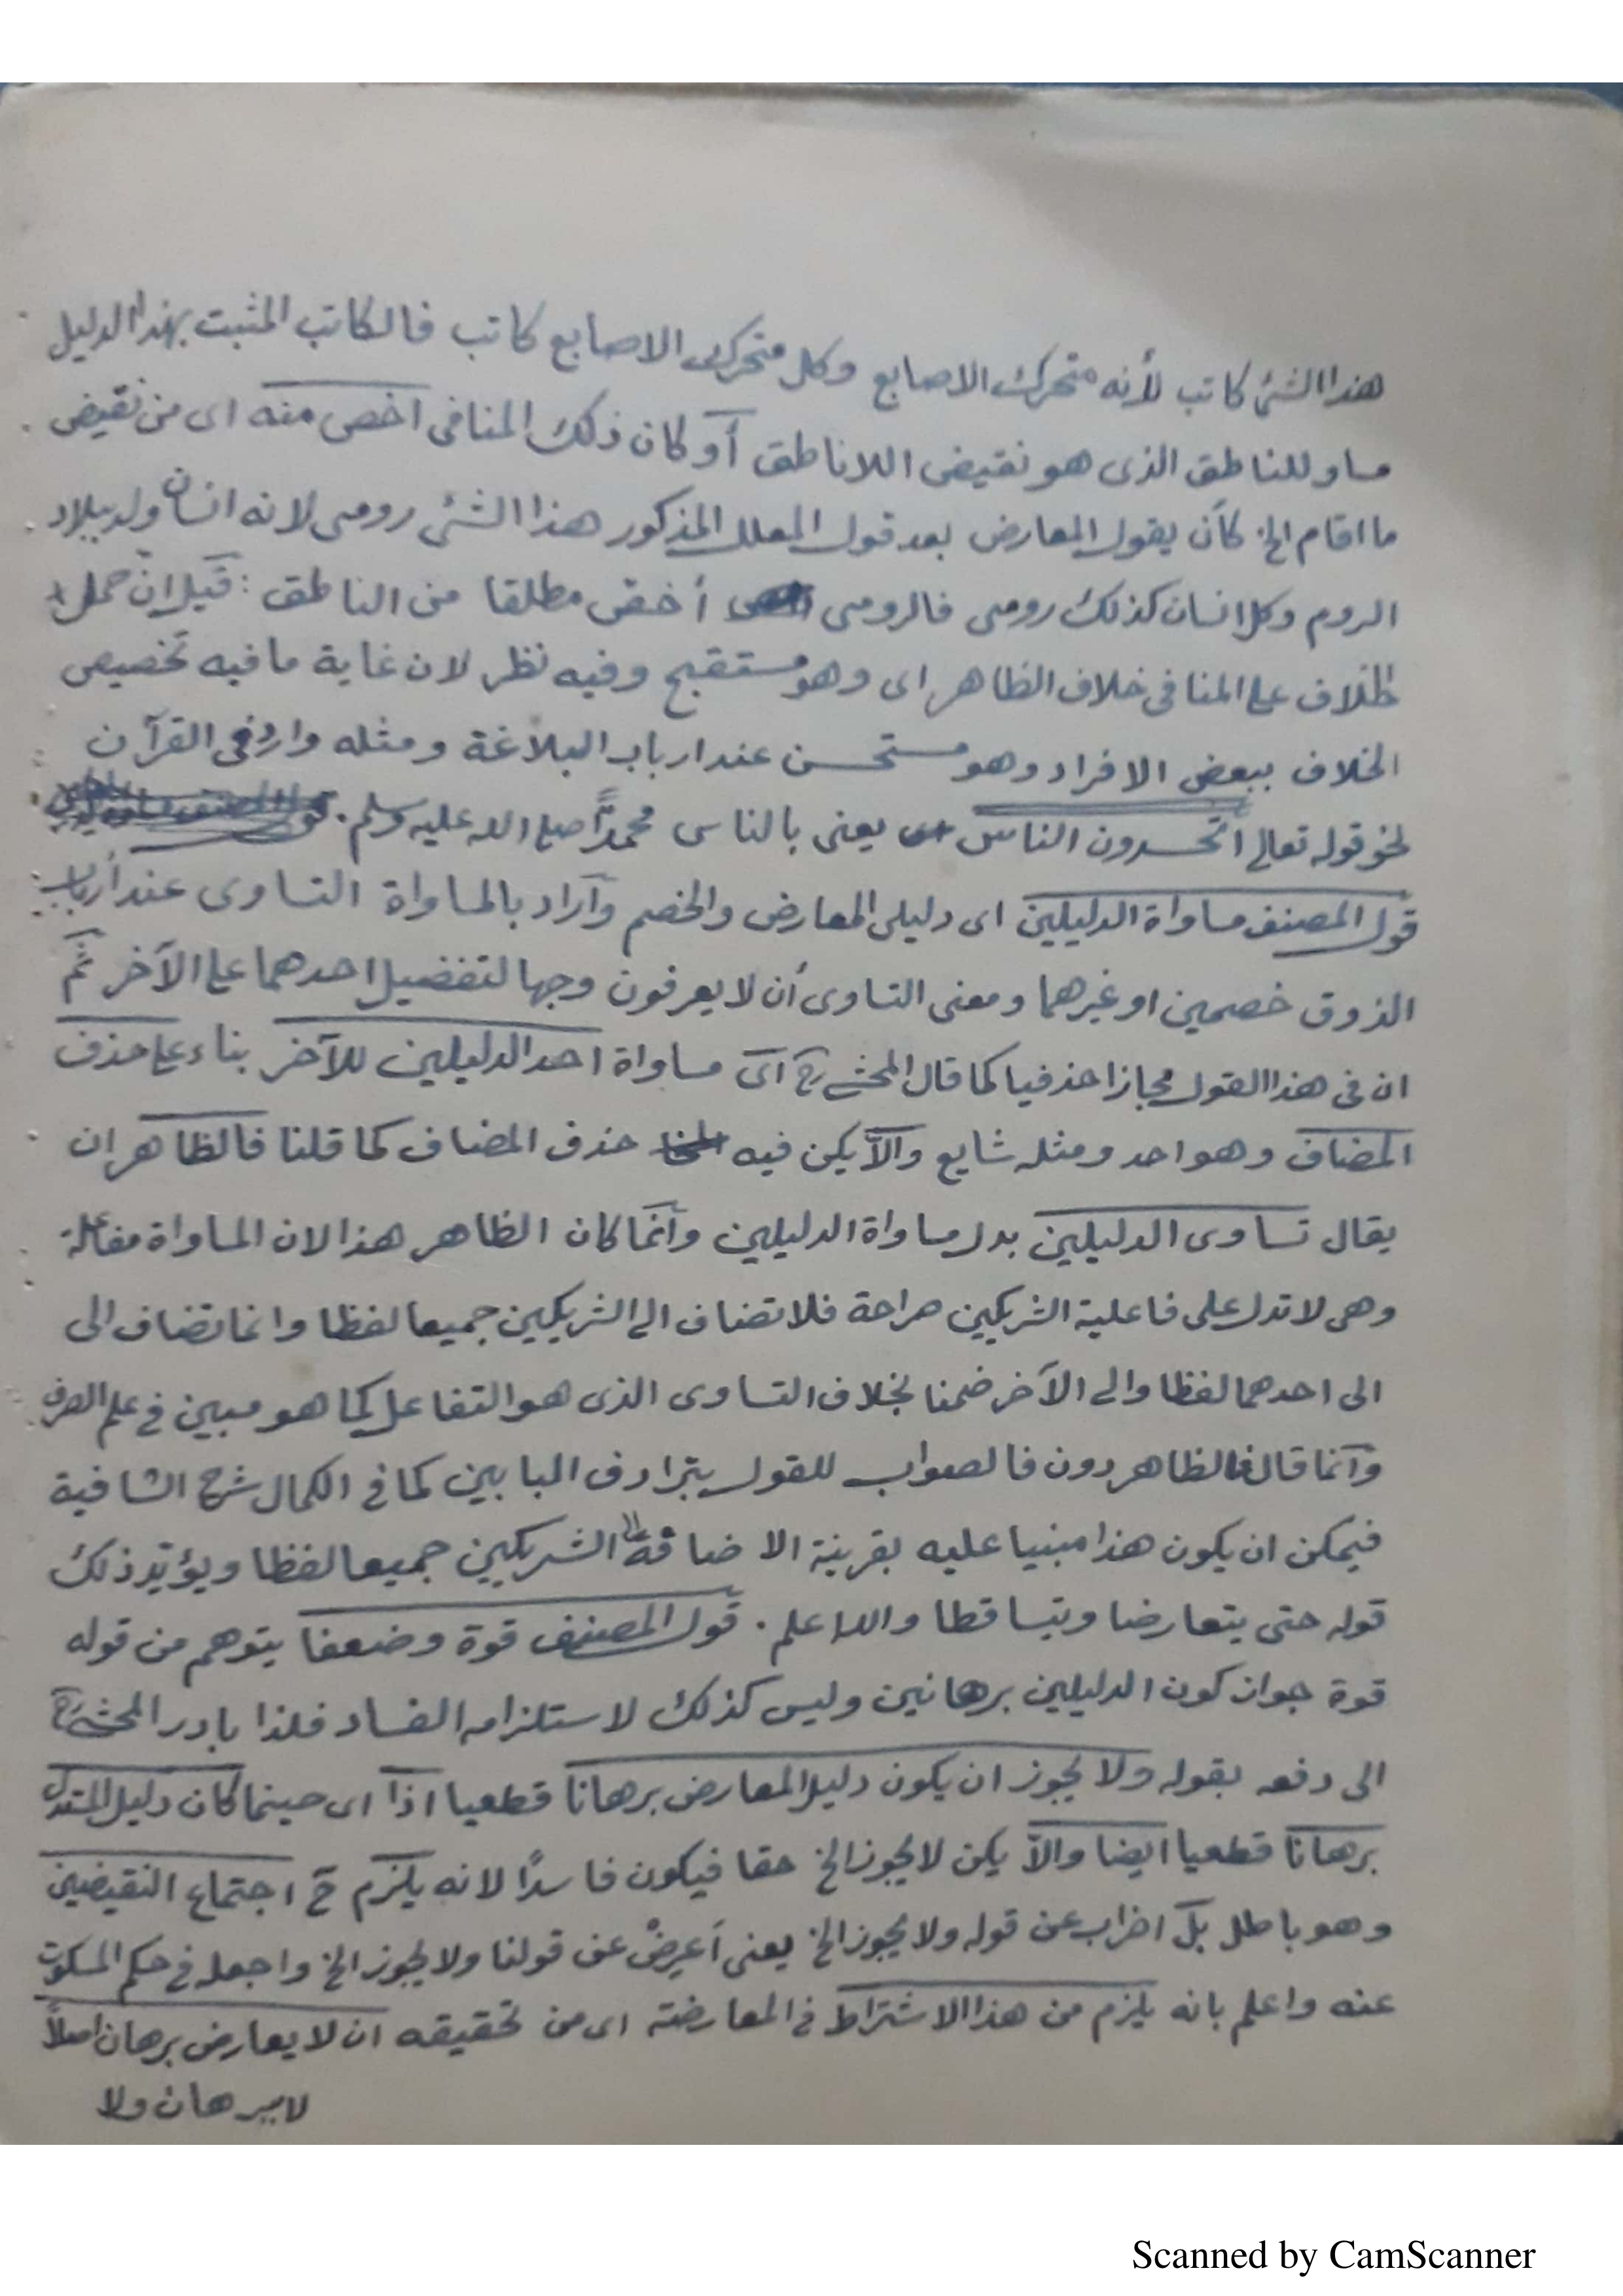 هذا الشئ كاتب لأنه متحرك الاصابع وكل متحرك الاصابع كاتب فالكاتب المثبت بهذا الدليل
مساو للناطق الذى هو نقيض اللاناطق أو كان ذلك المنافى اخص منه اى من نقيض
ما اقام الخ كأن يقول المعارض بعد قول المعلل المذكور هذا الشئ رومى لانه انسان ولد ببلاد
الروم وكل انسان كذلك رومى فالرومى أخص مطلقا من الناطق : قيل ان حمل
الخلاف على المنافى خلاف الظاهر اى وهو مستقبح وفيه نظر لان غاية ما فيه تخصيص
الخلاف ببعض الافراد وهو مستحسن عند ارباب البلاغة ومثله وارد فى القرآن
نحو قوله تعالى أتحسدون الناس يعنى بالناس محمدًا صلى الله عليه وسلم .
قول المصنف مساواة الدليلين اى دليلى المعارض والخصم وأراد بالمساواة التساوى عند أرباب
الذوق خصمين او غيرهما ومعنى التساوى أن لا يعرفون وجها لتفضيل احدهما على الآخر ثم
ان فى هذا القول مجازا حذفيا كما قال المحشى رح اى مساواة احد الدليلين للآخر بناء على حذف
المضاف وهو احد ومثله شايع والّا يكن فيه حذف المضاف كما قلنا فالظاهر ان
يقال تساوى الدليلين بدل مساواة الدليلين وانما كان الظاهر هذا لان المساواة مفاعلة
وهى لا تدل على فاعلية الشريكين صراحة فلا تضاف الى الشريكين جميعا لفظا وانما تضاف الى
الى احدهما لفظا والى الآخر ضمنا بخلاف التساوى الذى هو التفاعل كما هو مبين فى علم الصرف
وانما قال فالظاهر دون فالصواب للقول بترادف البابين كما فى الكمال شرح الشافية
فيمكن ان يكون هذا مبنيا عليه بقرينة الاضافة الى الشريكين جميعا لفظا ويؤيد ذلك
قوله حتى يتعارضا ويتساقطا والله اعلم . قول المصنف قوة وضعفا يتوهم من قوله
قوة جواز كون الدليلين برهانين وليس كذلك لاستلزامه الفساد فلذا بادر المحشى رح
الى دفعه بقوله ولا يجوز ان يكون دليل المعارض برهانا قطعيا اذا اى حينما كان دليل المستدل
برهانا قطعيا ايضا والّا يكن لا يجوز الخ حقا فيكون فاسدًا لانه يلزم ح اجتماع النقيضين
وهو باطل بل اضراب عن قوله ولا يجوز الخ يعنى أعرض عن قولنا ولا يجوز الخ واجعله فى حكم المسكوت
عنه واعلم بانه يلزم من هذا الاشتراط فى المعارضة اى من تحقيقه ان لا يعارض برهان اصلاً
لا ببرهان ولا
Scanned by CamScanner